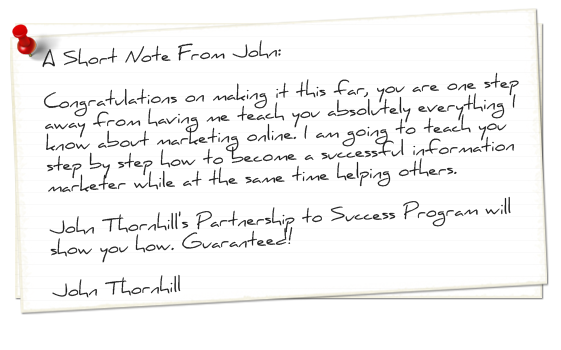 A Short Note From John:
Congratulations on making it this far, you are one step
away from having me teach you absolutely everything I
know about marketing online. I am going to teach you
step by step how to become a successful information
marketer while at the same time helping others.
John Thornhill's Partnership to Success Program will
show you how. Guaranteed!
John Thornhill